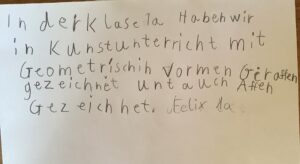 In der Klase 1a Haben wir
in Kunstunterricht mit
Geometrischin Vormen Giraffen
gezeichnet unt auch Affen
Gezeichnet. Felix 1a.